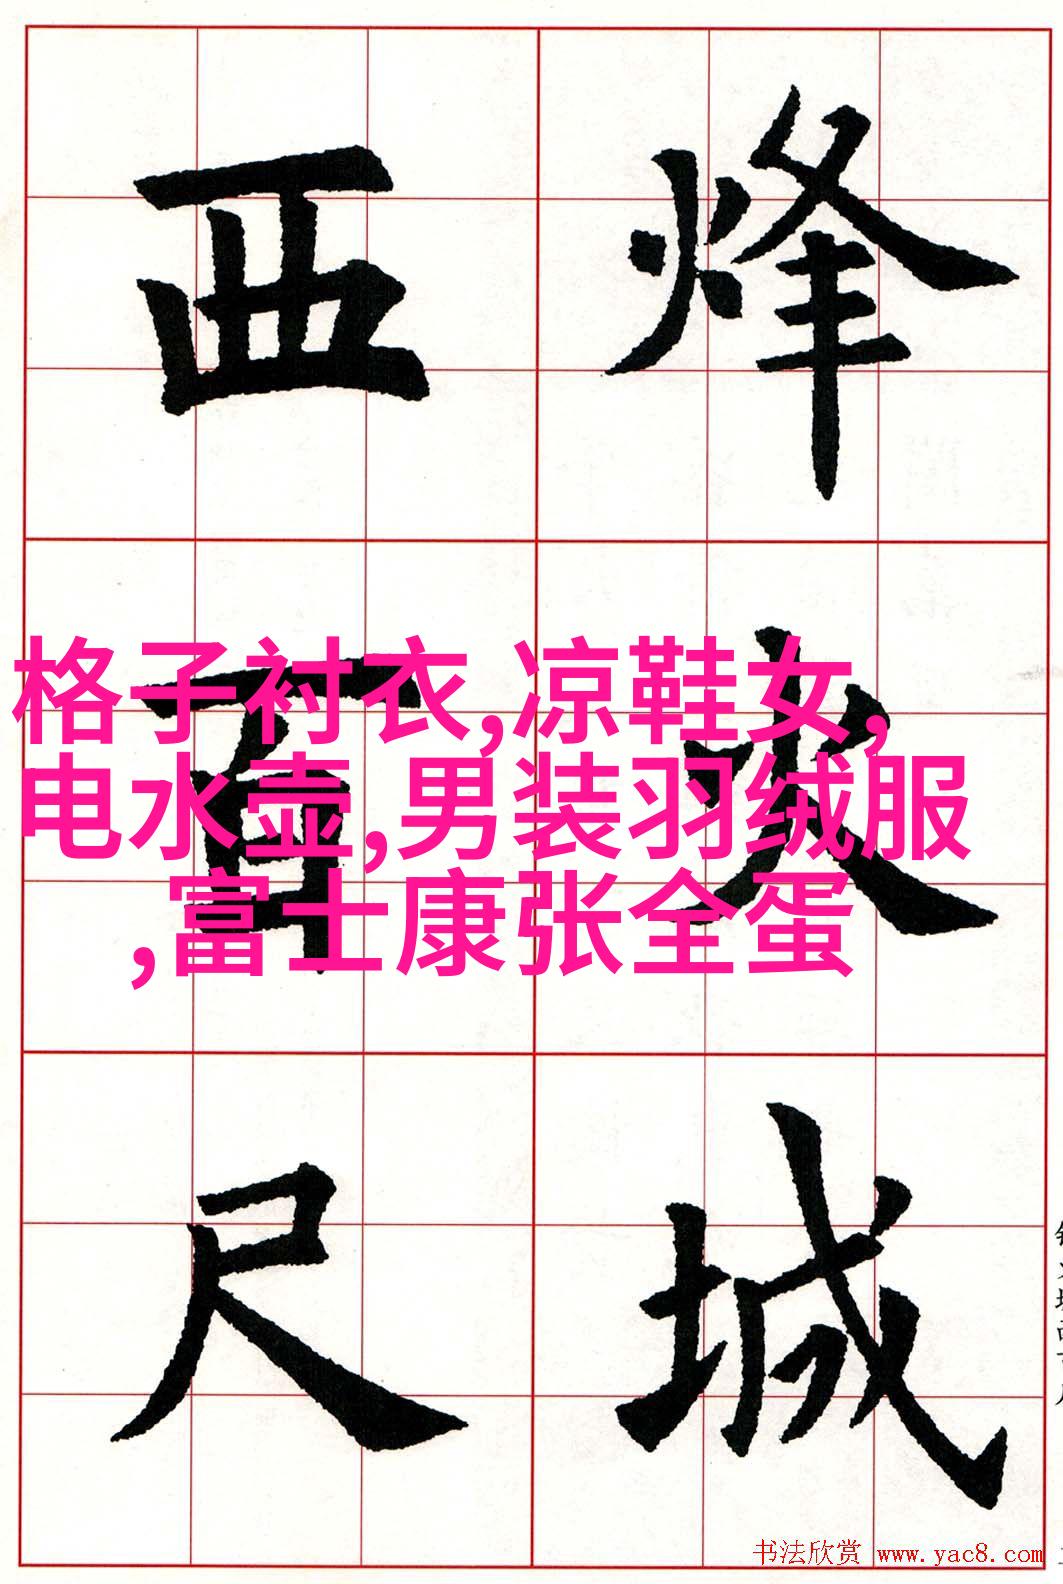 烽火城
西百尺
格子衬衣,凉鞋女,
电水壶,男装羽绒服
,富士康张全蛋
书法欣赏 www.yac8.com